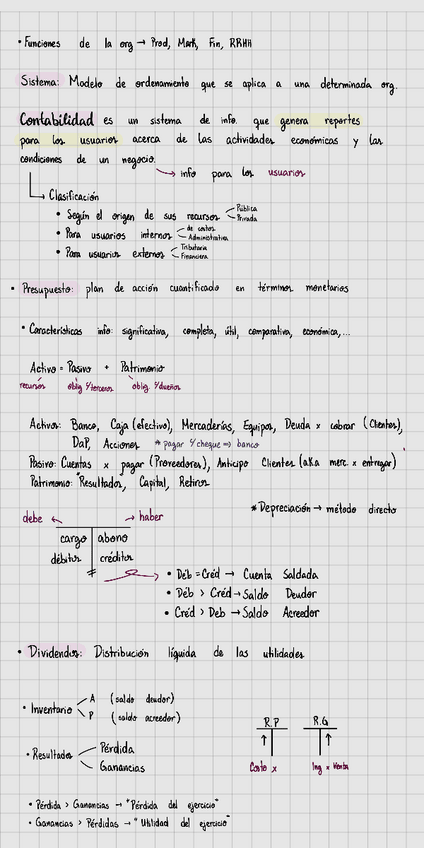 • Funciones de la org → Prod, Mark, Fin, RRHH
Sistema: Modelo de ordenamiento que se aplica a una determinada org.
Contabilidad es un sistema de info. que genera reportes
para los usuarios acerca de las actividades económicas y las
condiciones de un negocio.
→ info para los usuarios
→ Clasificación
• Según el origen de sus recursos
Pública
Privada
• Para usuarios internos
de costos
Administrativa
• Para usuarios externos
Tributaria
Financiera
• Presupuesto: plan de acción cuantificado en términos monetarios
• Características info: significativa, completa, útil, comparativa, económica,...
Activo = Pasivo + Patrimonio
recursos oblig c/terceros oblig c/dueños
Activos: Banco, Caja (efectivo), Mercaderías, Equipos, Deuda x cobrar (Clientes),
DaP, Acciones * pagar c/cheque ⇒ banco
Pasivo: Cuentas x pagar (Proveedores), Anticipo Clientes (aKa merc. x entregar)
Patrimonio: Resultados, Capital, Retiros
* Depreciación → método directo
debe ← → haber
cargo abono
débitos créditos
• Déb = Créd → Cuenta Saldada
• Déb > Créd → Saldo Deudor
• Créd > Deb → Saldo Acreedor
• Dividendos: Distribución líquida de las utilidades
• Inventario
A (saldo deudor)
P (saldo acreedor)
• Resultados
Pérdida
Ganancias
R.P R.G
↑ ↑
Costo x Ing x Venta
• Pérdida > Ganancias → "Pérdida del ejercicio"
• Ganancias > Pérdidas → "Utilidad del ejercicio"